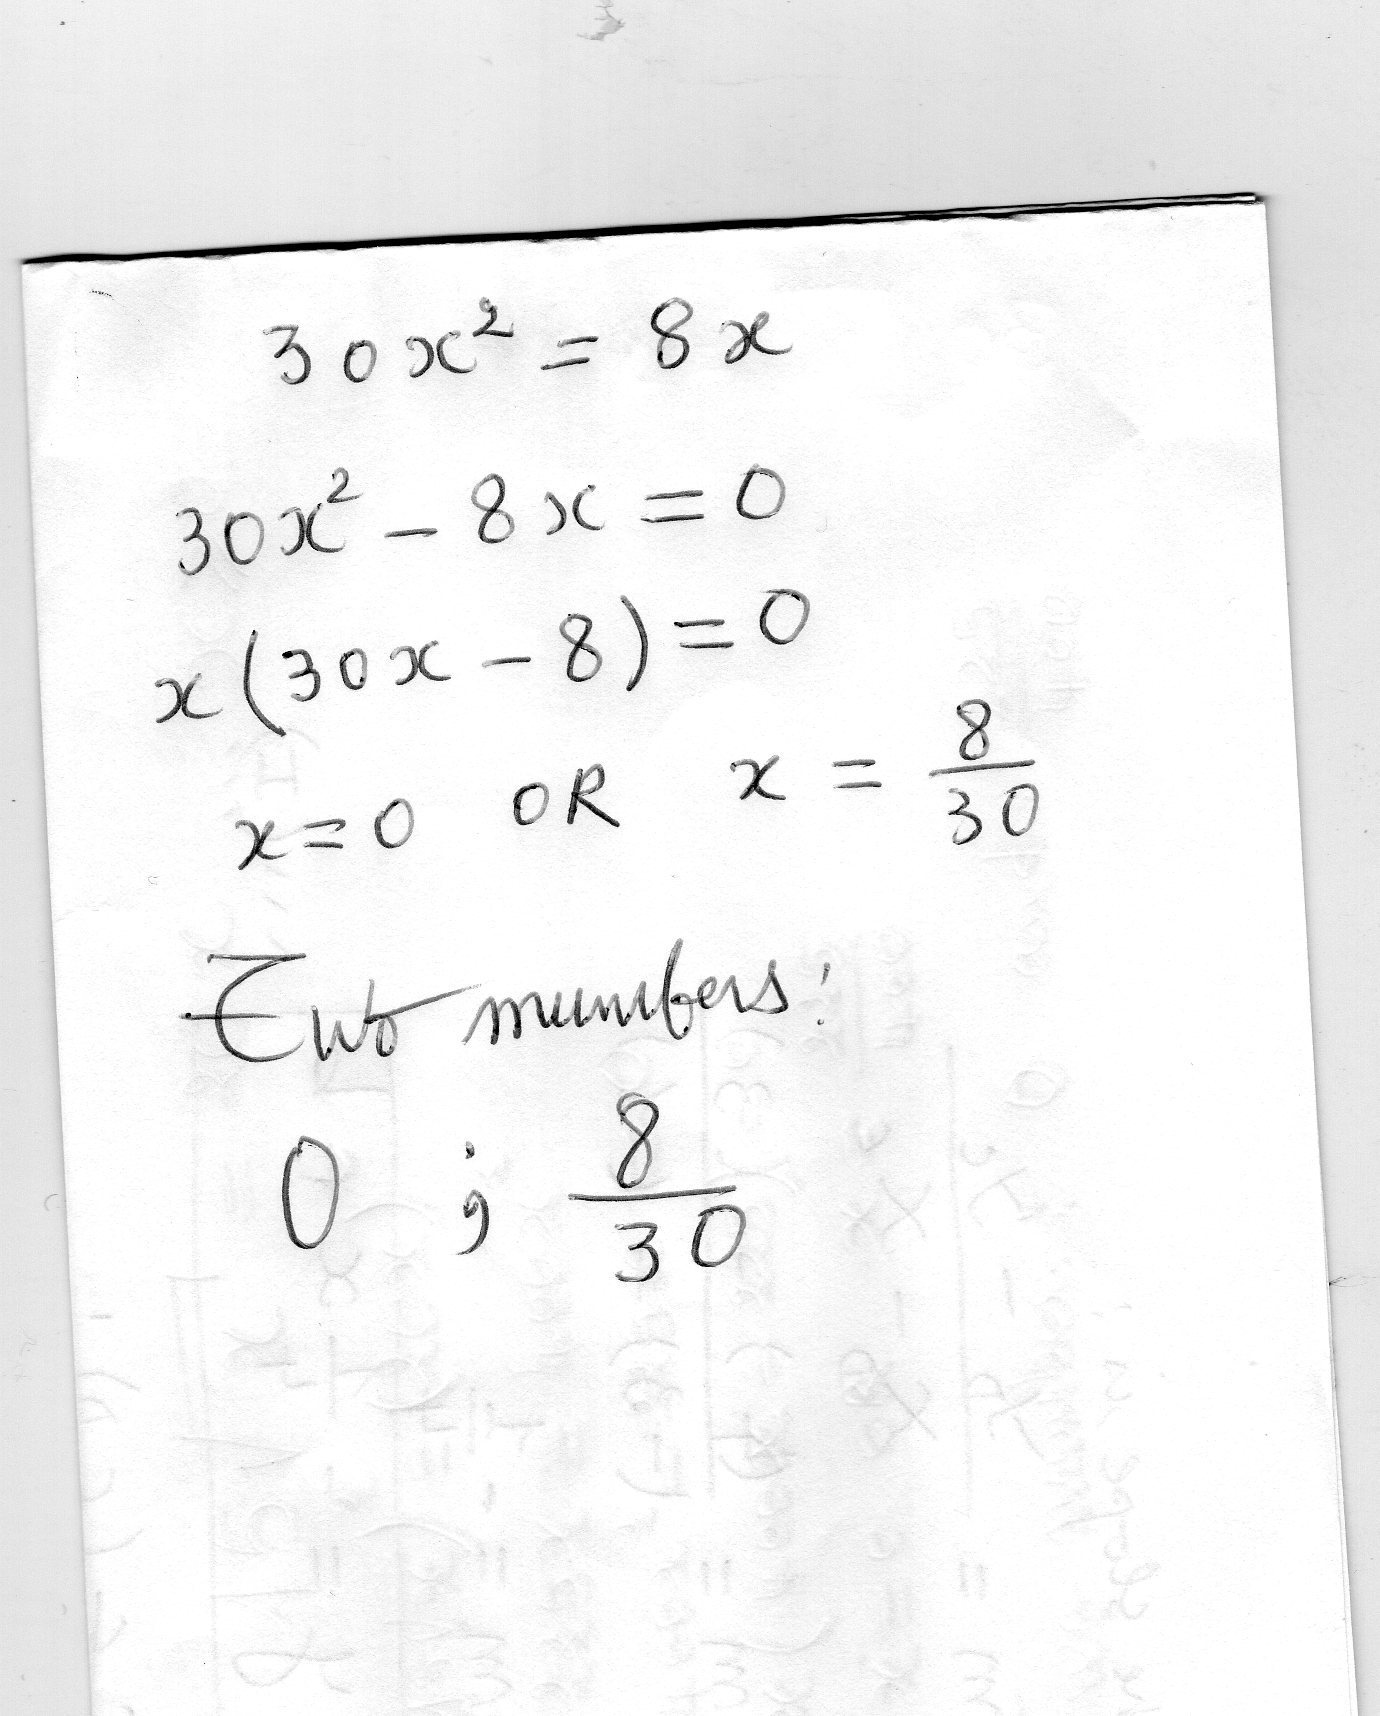 30x² = 8x
30x² - 8x = 0
x(30x - 8) = 0
x = 0 OR x = 8/30
Two numbers:
0 ; 8/30